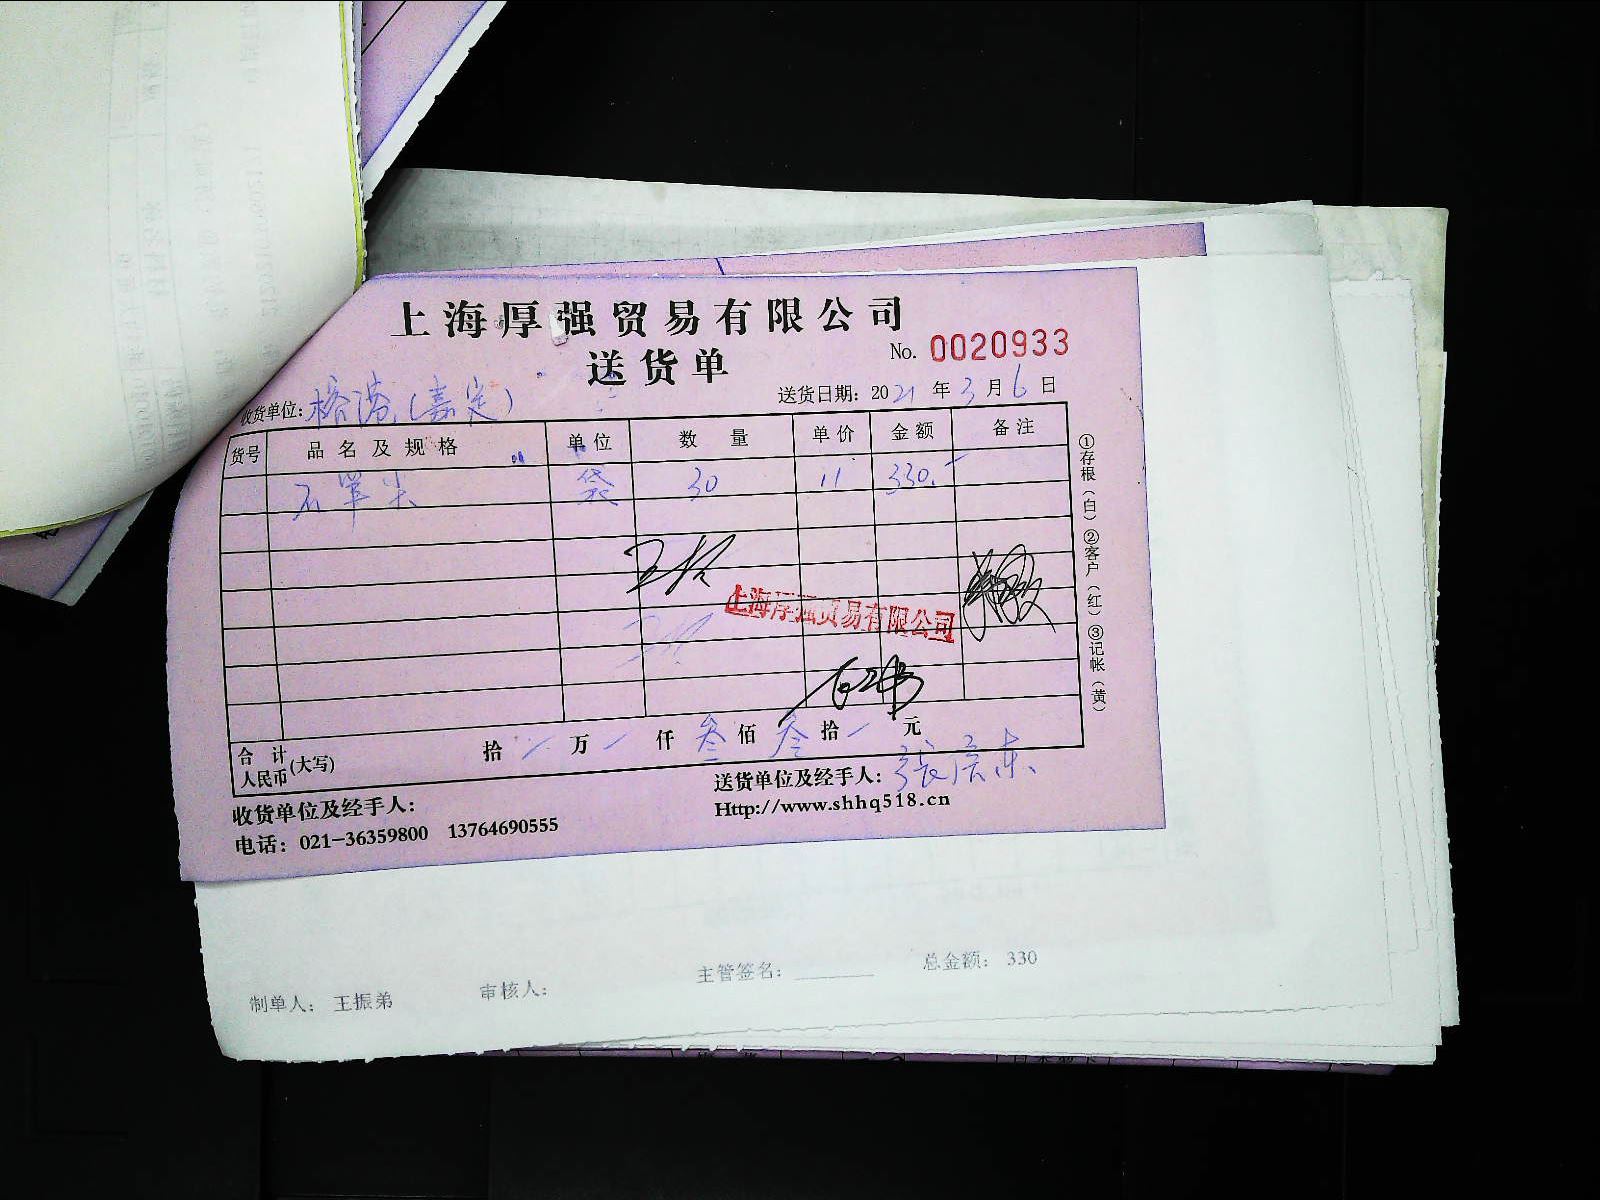 上海厚强贸易有限公司
送货单
No. 0020933
收货单位: 榕港(嘉定)
送货日期: 2021年3月6日
货号 品名及规格 单位 数量 单价 金额 备注
袋 30 11 330.-
上海厚强贸易有限公司
合计人民币(大写) 拾 万 仟 叁佰 叁拾 元
收货单位及经手人:
送货单位及经手人:
电话: 021-36359800 13764690555
Http://www.shhq518.cn
①存根(白) ②客户(红) ③记帐(黄)
制单人: 王振弟
审核人:
主管签名:
总金额: 330